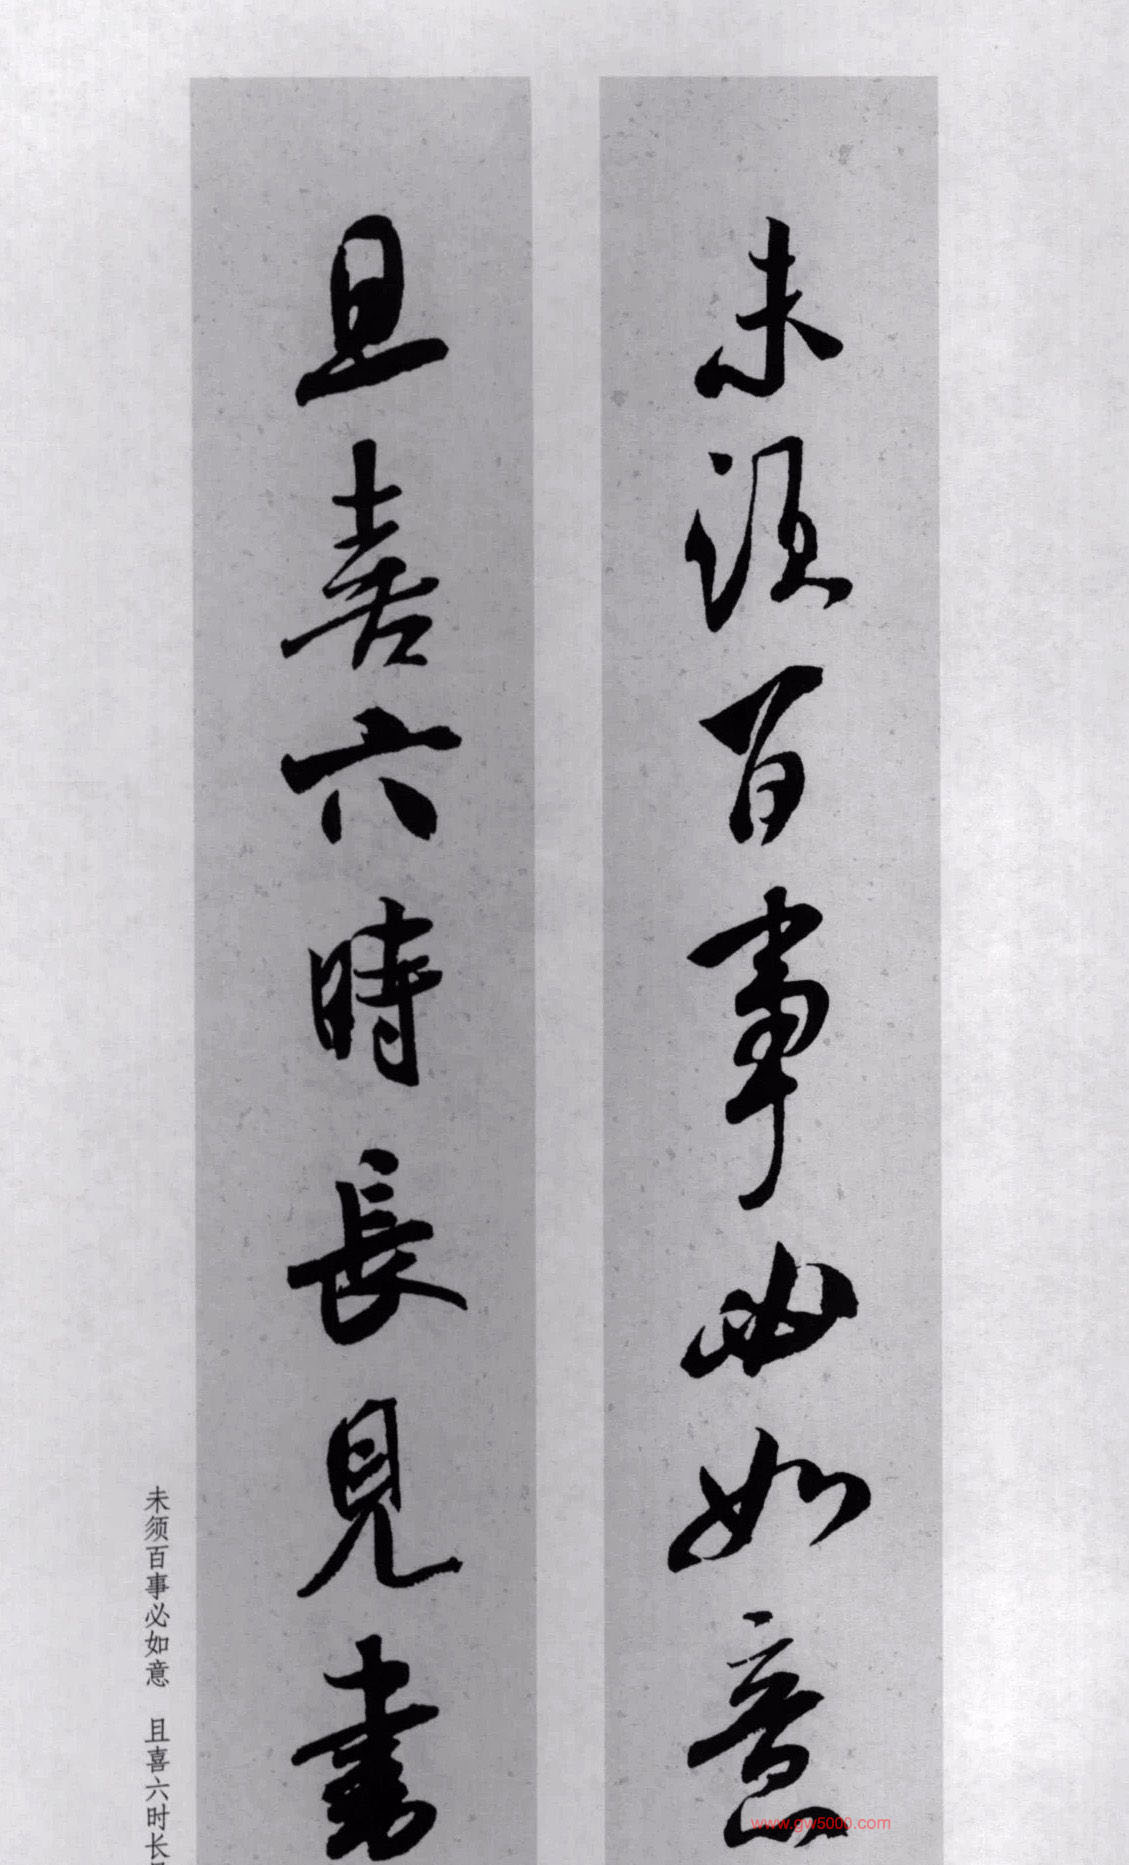 未須百事必如意
且喜六時長見書
未须百事必如意 且喜六时长
www.gw5000.com